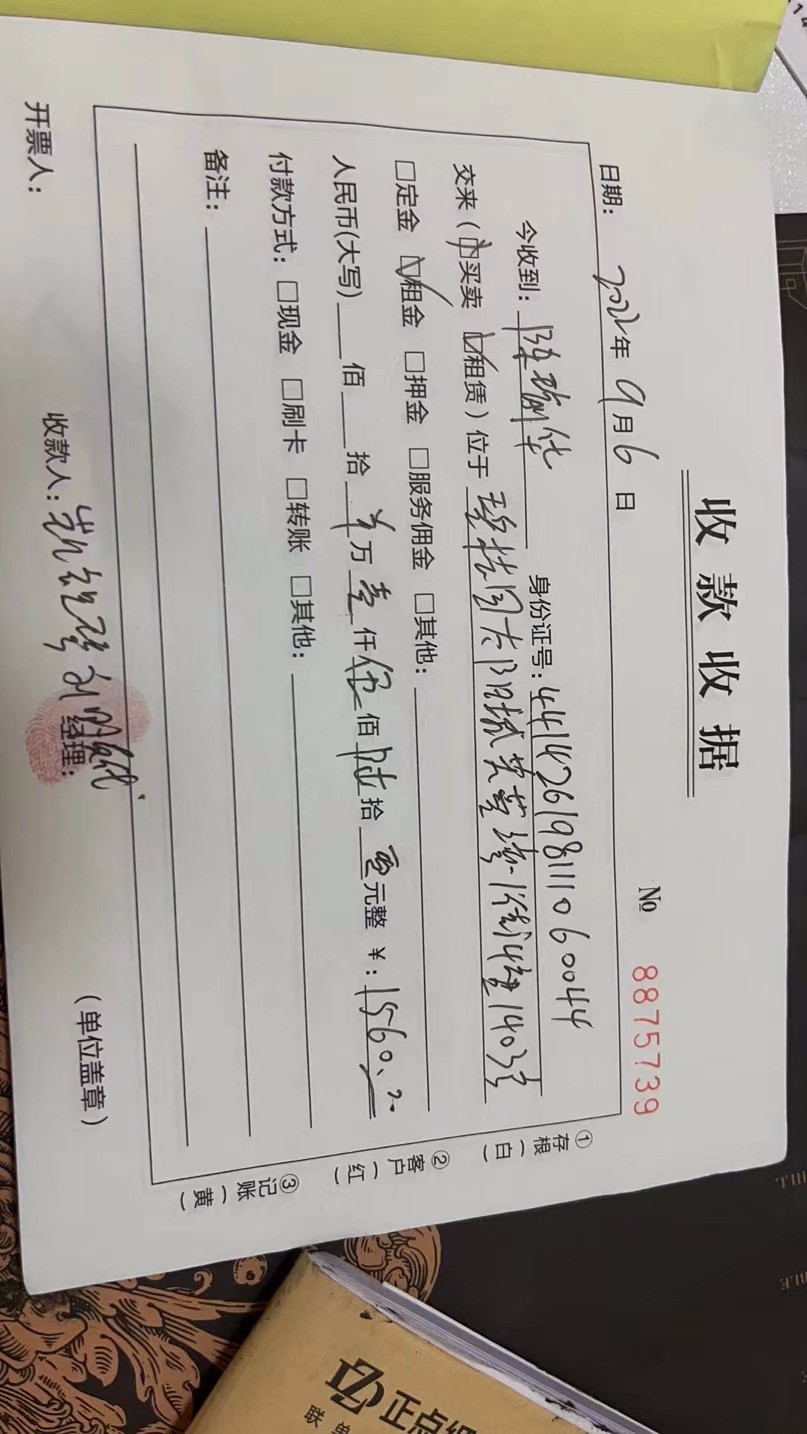 收款收据
№ 8875739
日期：2022年9月6日
今收到：陈 身份证号：441426198111060044
交来（□买卖 ☑租赁）位于 碧桂园太阳城芙蓉 1街 14 1403
□定金 ☑租金 □押金 □服务佣金 □其他：
人民币(大写) 佰 拾 万壹仟伍佰陆拾零元整 ¥：1560.
付款方式：□现金 □刷卡 □转账 □其他：
备注：
开票人： 收款人： 刘 经理： （单位盖章）
①存根（白）
②客户（红）
③记账（黄）
正点纸
联单